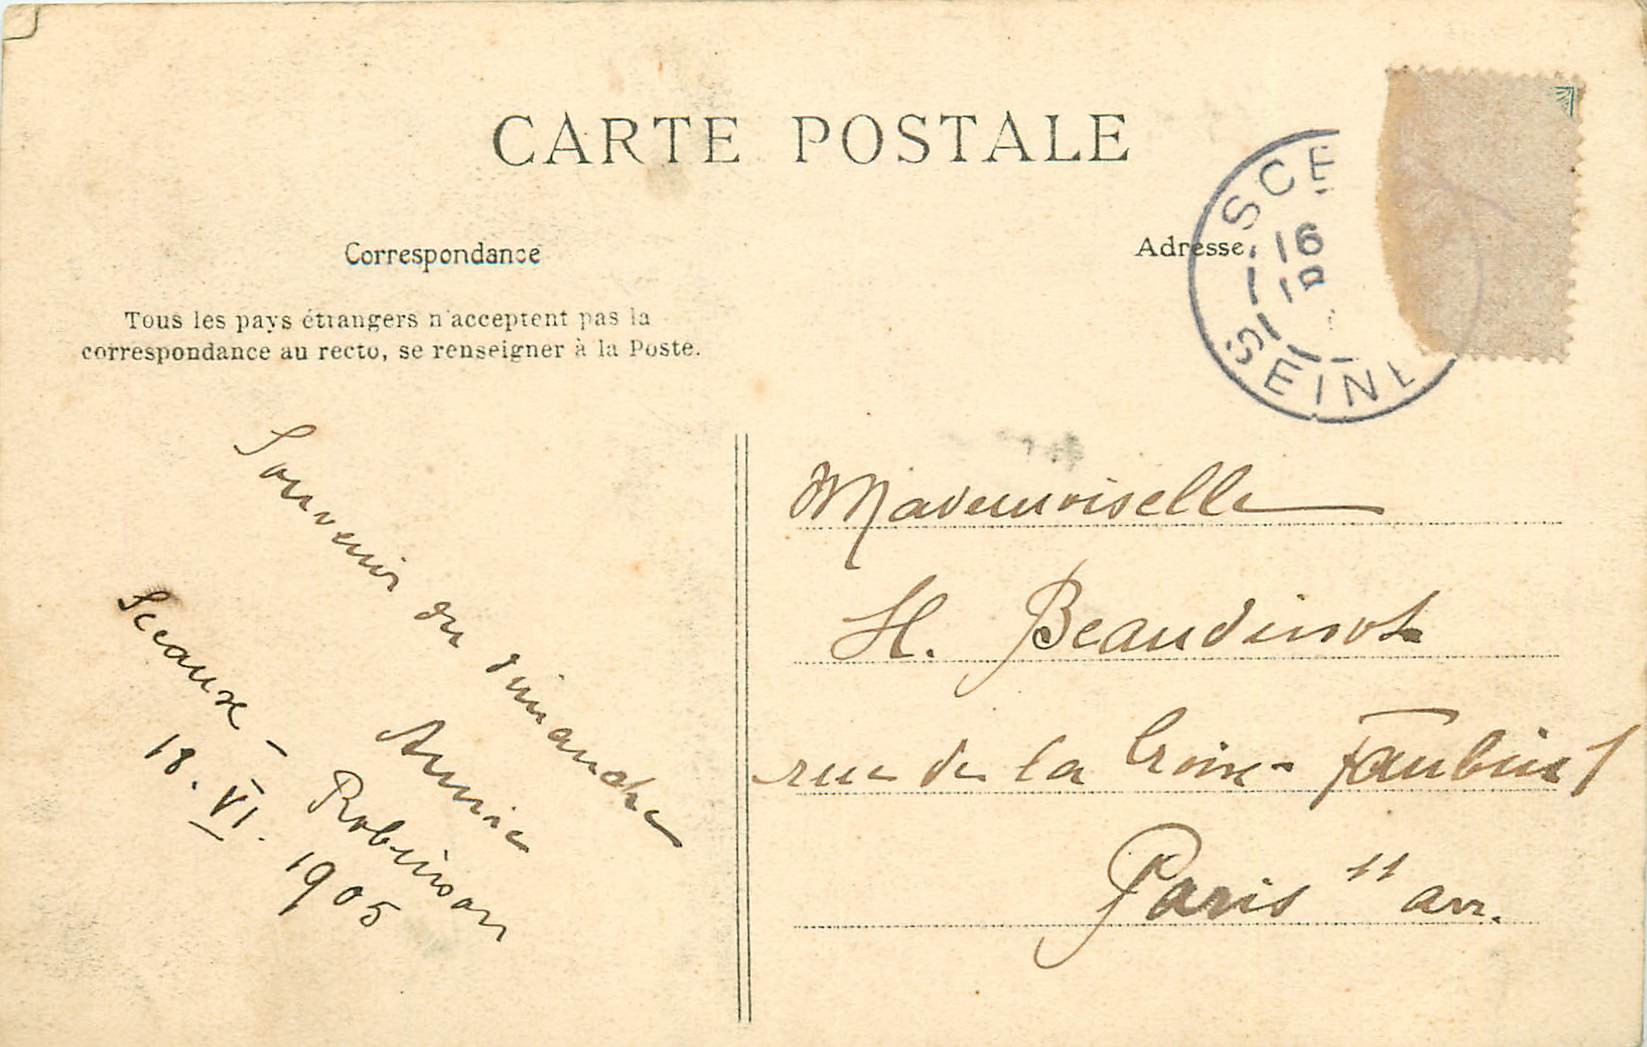 CARTE POSTALE
Correspondance
Adresse
Tous les pays étrangers n'acceptent pas la
correspondance au recto, se renseigner à la Poste.
SCE
16
SEINE
Souvenir du dimanche
Annie
Sceaux - Robinson
18. VI. 1905
Mademoiselle
H. Beaudinot
rue de la Croix-Faubin 1
Paris 11 arr.